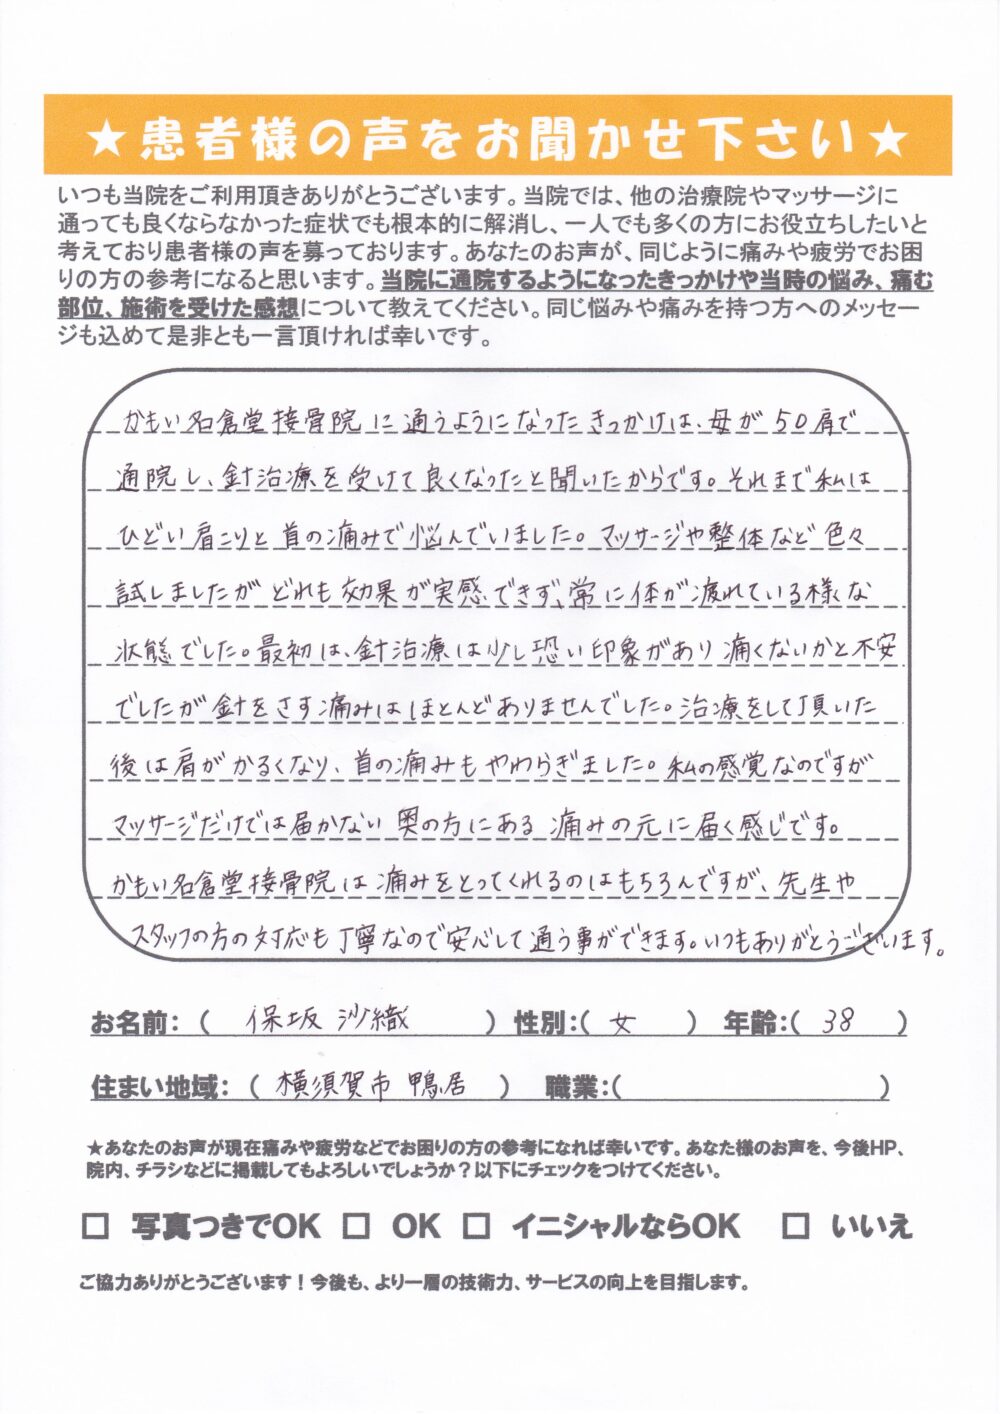 ★患者様の声をお聞かせ下さい★
いつも当院をご利用頂きありがとうございます。当院では、他の治療院やマッサージに
通っても良くならなかった症状でも根本的に解消し、一人でも多くの方にお役立ちしたいと
考えており患者様の声を募っております。あなたのお声が、同じように痛みや疲労でお困
りの方の参考になると思います。当院に通院するようになったきっかけや当時の悩み、痛む
部位、施術を受けた感想について教えてください。同じ悩みや痛みを持つ方へのメッセー
ジも込めて是非とも一言頂ければ幸いです。
かもい名倉堂接骨院に通うようになったきっかけは、母が50肩で
通院し、針治療を受けて良くなったと聞いたからです。それまで私は
ひどい肩こりと首の痛みで悩んでいました。マッサージや整体など色々
試しましたがどれも効果が実感できず、常に体が疲れている様な
状態でした。最初は、針治療は少し恐い印象があり痛くないかと不安
でしたが針をさす痛みはほとんどありませんでした。治療をして頂いた
後は肩がかるくなり、首の痛みもやわらぎました。私の感覚なのですが
マッサージだけでは届かない奥の方にある痛みの元に届く感じです。
かもい名倉堂接骨院は痛みをとってくれるのはもちろんですが、先生や
スタッフの方の対応も丁寧なので安心して通う事ができます。いつもありがとうございます。
お名前:（ 保坂 沙織 ） 性別:（ 女 ） 年齢:（ 38 ）
住まい地域:（ 横須賀市 鴨居 ） 職業:（ ）
★あなたのお声が現在痛みや疲労などでお困りの方の参考になれば幸いです。あなた様のお声を、今後HP、
院内、チラシなどに掲載してもよろしいでしょうか？以下にチェックをつけてください。
□ 写真つきでOK □ OK □ イニシャルならOK □ いいえ
ご協力ありがとうございます！今後も、より一層の技術力、サービスの向上を目指します。